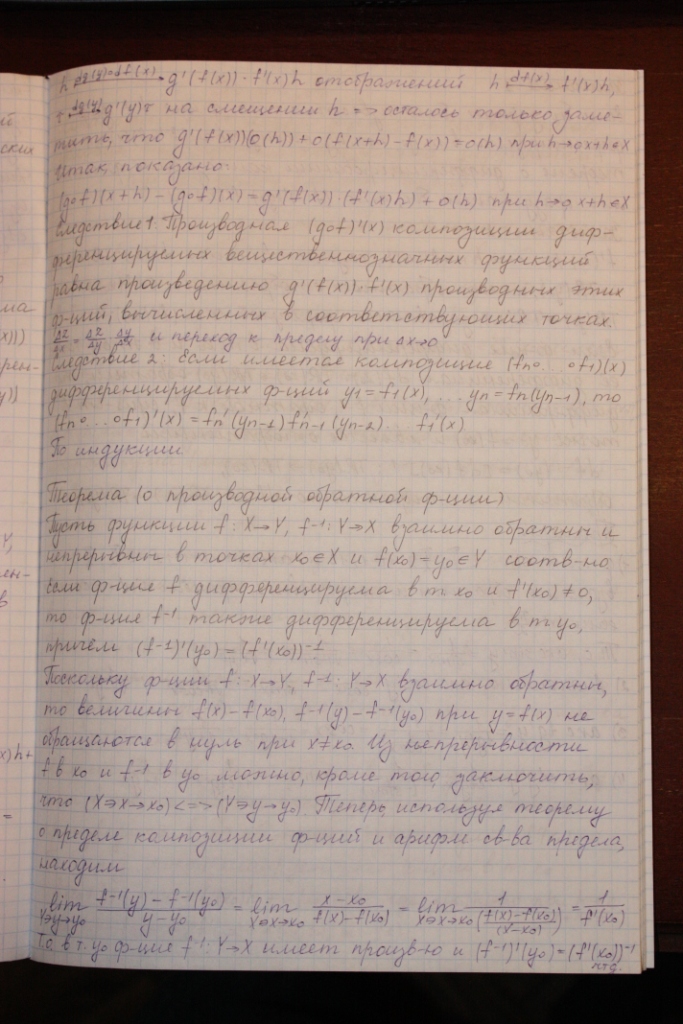 h —dg(y)∘df(x)→ g'(f(x))·f'(x)h отображений h —df(x)→ f'(x)h,
τ —dg(y)→ g'(y)τ на смещении h => осталось только заме-
тить, что g'(f(x))(o(h)) + o(f(x+h)-f(x)) = o(h) при h→0 x+h∈X
итак, показано:
(g∘f)(x+h) - (g∘f)(x) = g'(f(x))·(f'(x)h) + o(h) при h→0 x+h∈X
Следствие 1. Производная (g∘f)'(x) композиции диф-
ференцируемых вещественнозначных функций
равна произведению g'(f(x))·f'(x) производных этих
ф-ций, вычисленных в соответствующих точках.
Δz/Δx = Δz/Δy · Δy/Δx и переход к пределу при Δx→0
Следствие 2: Если имеется композиция (fn∘...∘f1)(x)
дифференцируемых ф-ций y1=f1(x), ... yn=fn(yn-1), то
(fn∘...∘f1)'(x) = fn'(yn-1) f'n-1(yn-2)... f1'(x)
По индукции
Теорема (о производной обратной ф-ции)
Пусть функции f: X→Y, f⁻¹: Y→X взаимно обратны и
непрерывны в точках x0∈X и f(x0)=y0∈Y соотв-но
если ф-ция f дифференцируема в т. x0 и f'(x0)≠0,
то ф-ция f⁻¹ также дифференцируема в т. y0,
причём (f⁻¹)'(y0) = (f'(x0))⁻¹
Поскольку ф-ции f: X→Y, f⁻¹: Y→X взаимно обратны,
то величины f(x)-f(x0), f⁻¹(y)-f⁻¹(y0) при y=f(x) не
обращаются в нуль при x≠x0. Из непрерывности
f в x0 и f⁻¹ в y0 можно, кроме того, заключить,
что (X∋x→x0) <=> (Y∋y→y0). Теперь, используя теорему
о пределе композиции ф-ций и арифм св-ва предела,
находим
lim Y∋y→y0 (f⁻¹(y)-f⁻¹(y0))/(y-y0) = lim X∋x→x0 (x-x0)/(f(x)-f(x0)) = lim X∋x→x0 1/((f(x)-f(x0))/(x-x0)) = 1/f'(x0)
Т.о. в т. y0 ф-ция f⁻¹: Y→X имеет произв-ю и (f⁻¹)'(y0) = (f'(x0))⁻¹
чтд.